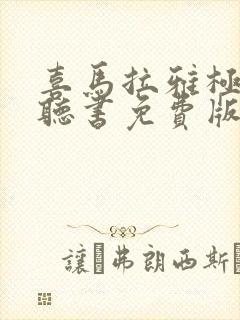 喜馬拉雅極
聽書免費版
讓·弗朗西斯